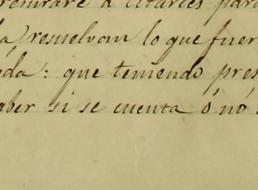 a citarles para
resuelvan lo que fuer
da: que teniendo pres
aber si se cuenta ó nó